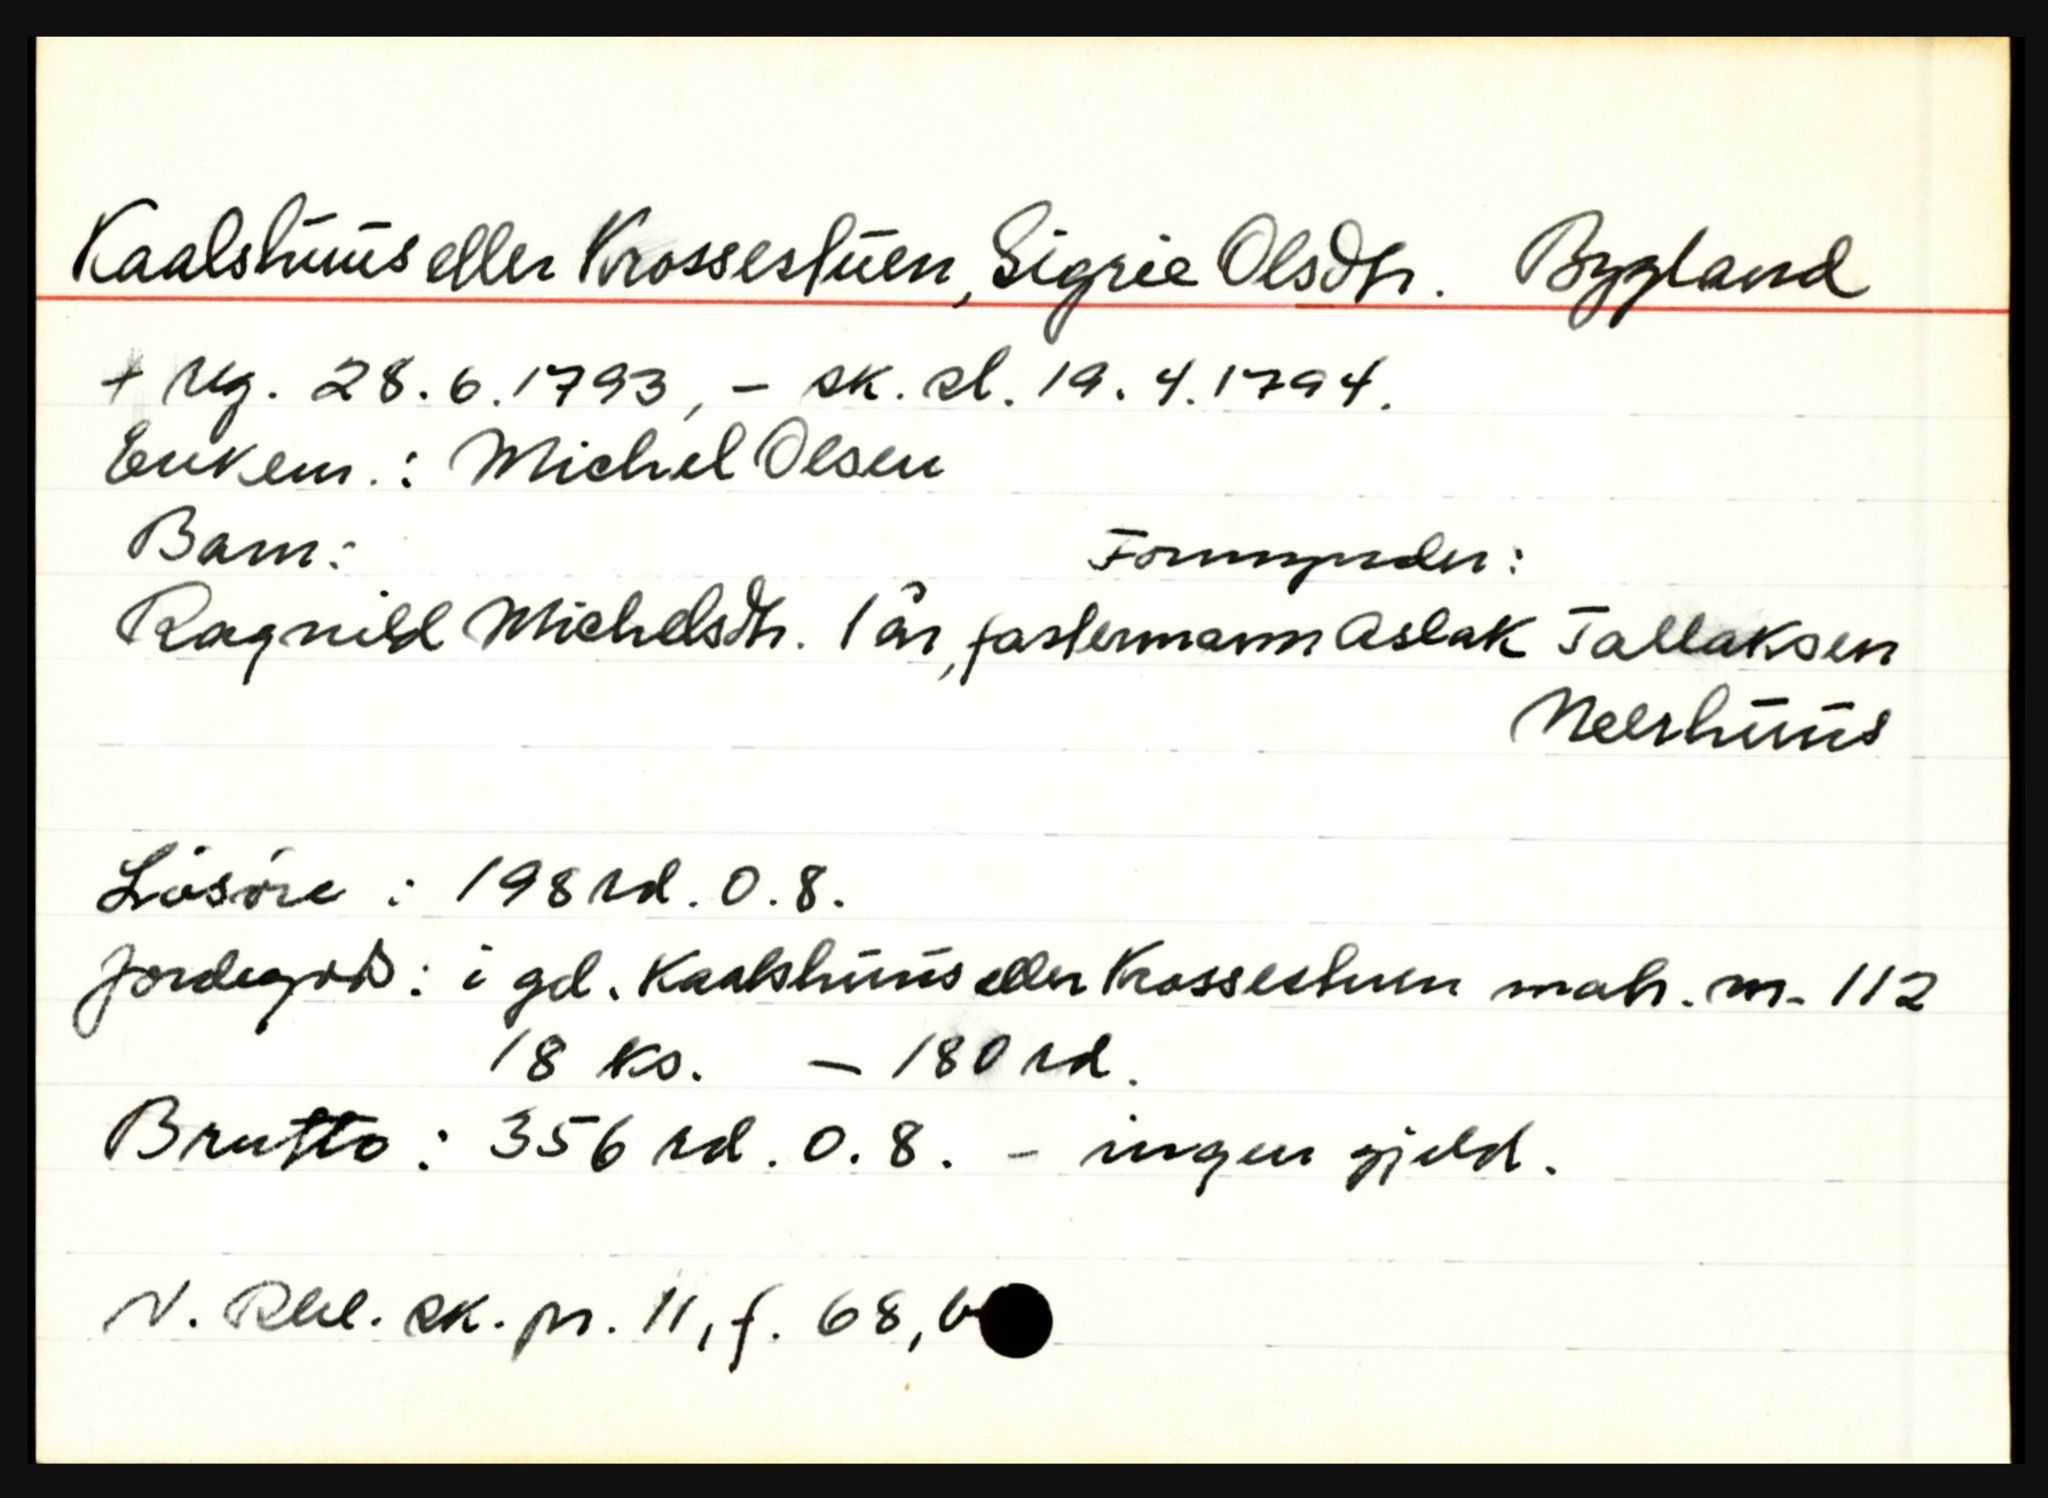 Kaalshuus eller Krossestuen, Sigrie Olsdtr. Bygland
+ reg. 28.6.1793, - sk. sl. 19.4.1794.
Enkem.: Michel Olsen
Barn: Formynder:
Ragnild Michelsdtr. 1 år, fastermann Aslak Tallaksen
Neershuus
Løsøre: 198 rd. 0.8.
Jordegods: i gd. Kaalshuus eller Krossestuen matr. nr. 112
18 ks. - 180 rd.
Brutto: 356 rd. 0.8. - ingen gjeld.
N. Rbl. sk. pr. 11, f. 68, b